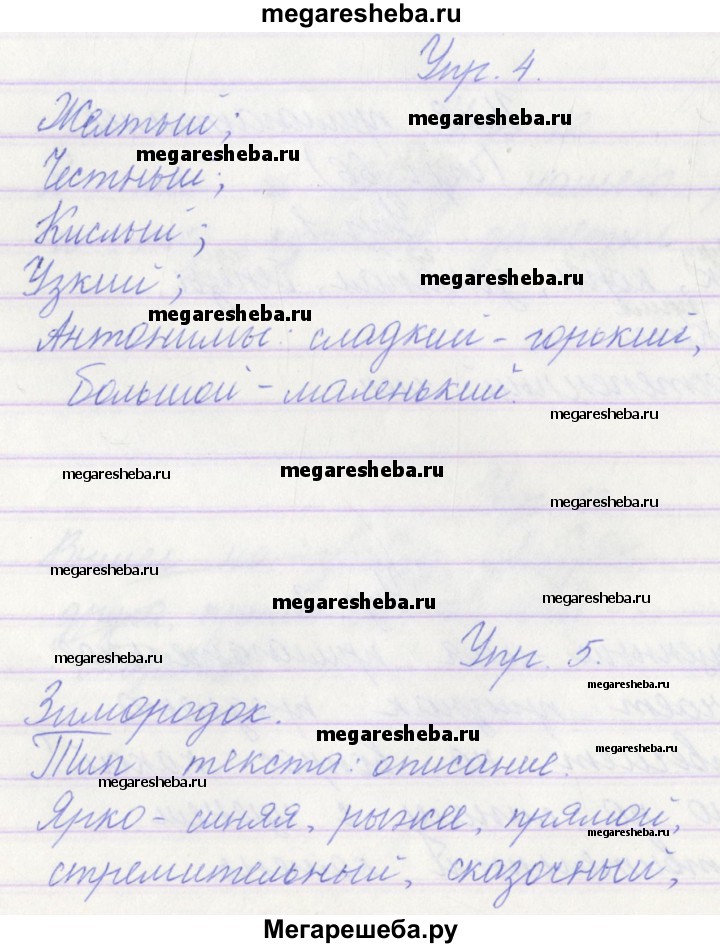 megaresheba.ru
Упр. 4.
Желтый;
megaresheba.ru
megaresheba.ru
Честный;
Кислый;
Узкий;
megaresheba.ru
megaresheba.ru
Антонимы: сладкий - горький,
большой - маленький.
megaresheba.ru
megaresheba.ru
megaresheba.ru
megaresheba.ru
megaresheba.ru
megaresheba.ru
megaresheba.ru
Упр. 5.
megaresheba.ru
megaresheba.ru
Зимородок.
megaresheba.ru
Тип текста: описание.
megaresheba.ru
megaresheba.ru
Ярко - синяя, рыжее, прямой,
megaresheba.ru
стремительный, сказочный,
Мегарешеба.ру